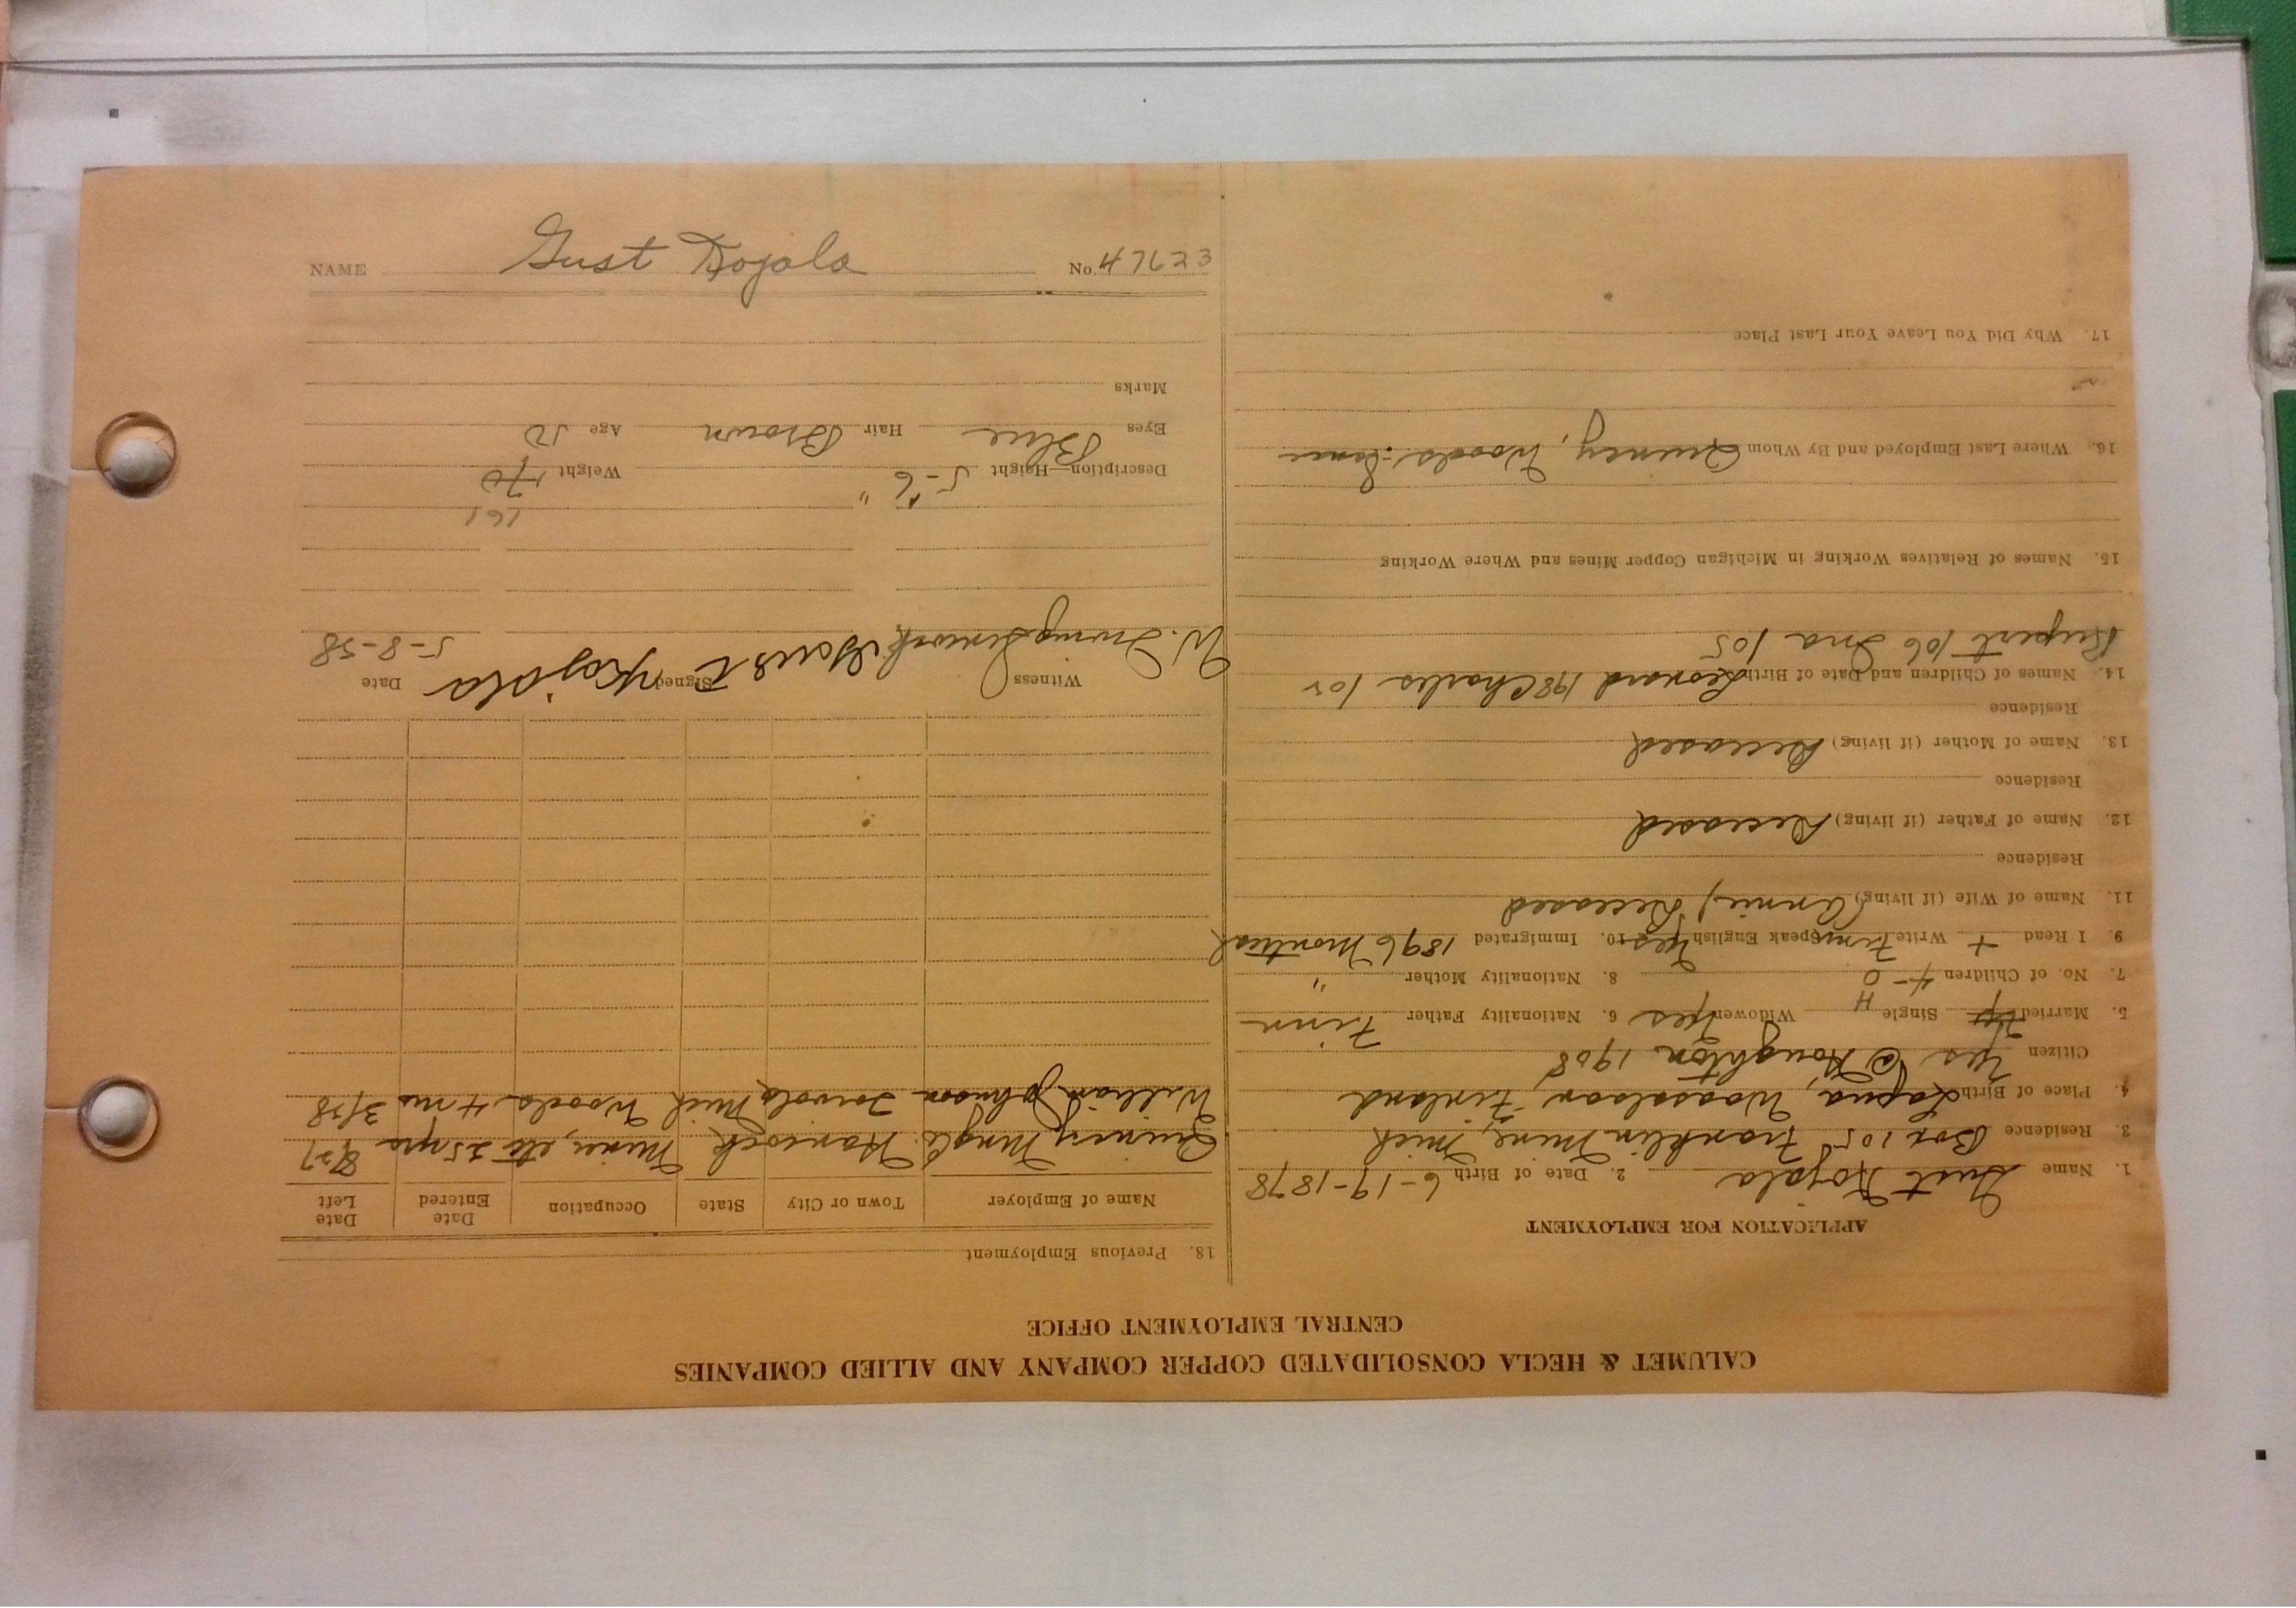 CALUMET & HECLA CONSOLIDATED COPPER COMPANY AND ALLIED COMPANIES
CENTRAL EMPLOYMENT OFFICE
APPLICATION FOR EMPLOYMENT
1. Name Gust Kojala 2. Date of Birth 6-19-1878
3. Residence Box 105 Franklin Mine, Mich
4. Place of Birth Lapua, Finland
Citizen Yes @ Houghton 1908
5. Married Single Widower Yes 6. Nationality Father Finn
7. No. of Children 4-0 8. Nationality Mother "
9. I Read + Write Finn Speak English Yes 10. Immigrated 1896 Montreal
11. Name of Wife (if living) (Annie) Deceased
Residence
12. Name of Father (if living) Deceased
Residence
13. Name of Mother (if living) Deceased
Residence
14. Names of Children and Date of Birth Leonard Charles
Rupert 106 Ina 105
15. Names of Relatives Working in Michigan Copper Mines and Where Working
16. Where Last Employed and By Whom Quincy, Woods:
17. Why Did You Leave Your Last Place
18. Previous Employment
Name of Employer Town or City State Occupation Date Entered Date Left
Quincy Mng Co. Hancock Miner, etc 25 yrs
William Johnson Toivola Mich Woods 4 mo
Witness Signed Date
W. Irving Goust Kojala
161
Description—Height 5'-6" Weight 170
Eyes Blue Hair Brown Age
Marks
NAME Gust Kojala No. 47623